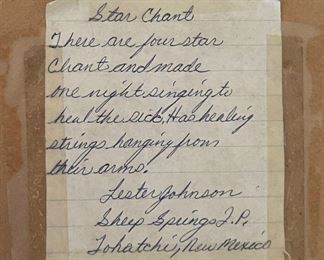 Star Chant
There are four star
Chant and made
one night singing to
heal the sick, Has healing
strings hanging from
their arms.
Lester Johnson
Sheep Springs T.P.
Tohatchi, New Mexico